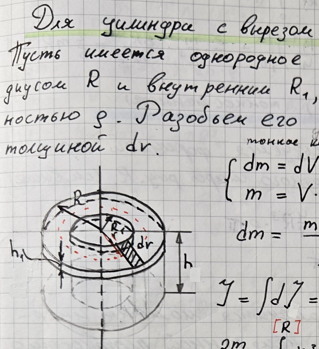 Для цилиндра с вырезом
Пусть имеется однородное
диусом R и внутренним R₁,
ностью ρ. Разобьем его
толщиной dr.
тонкое
dm = dV
m = V·
dm = m
R
r
dr
h₁
h
J = ∫dJ =
[R]
2m